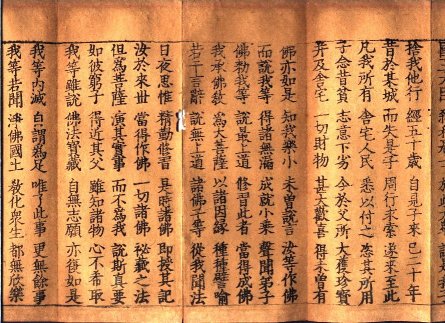 捨我他行 經五十歲 自見子來 已二十年
昔於某城 而失是子 周行求索 遂來至此
凡我所有 舍宅人民 悉以付之 恣其所用
子念昔貧 志意下劣 今於父所 大獲珍寶
并及舍宅 一切財物 甚大歡喜 得未曾有
佛亦如是 知我樂小 未曾說言 汝等作佛
而說我等 得諸無漏 成就小乘 聲聞弟子
佛勑我等 說最上道 修習此者 當得成佛
我承佛教 為大菩薩 以諸因緣 種種譬喻
若干言辭 說無上道 諸佛子等 從我聞法
日夜思惟 精勤修習 是時諸佛 即授其記
汝於來世 當得作佛 一切諸佛 祕藏之法
但為菩薩 演其實事 而不為我 說斯真要
如彼窮子 得近其父 雖知諸物 心不希取
我等雖說 佛法寶藏 自無志願 亦復如是
我等內滅 自謂為足 唯了此事 更無餘事
我等若聞 淨佛國土 教化衆生 都無欣樂